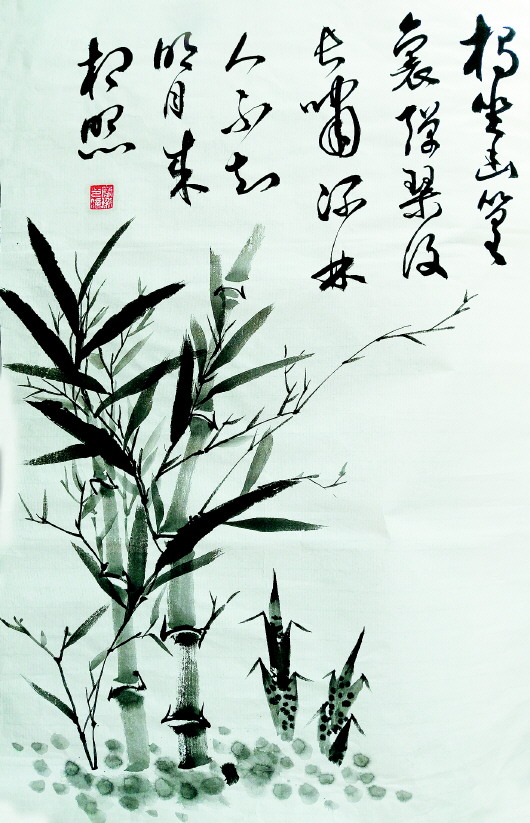 独坐幽篁
裏弹琴復
长啸深林
人不知
明月来
相照